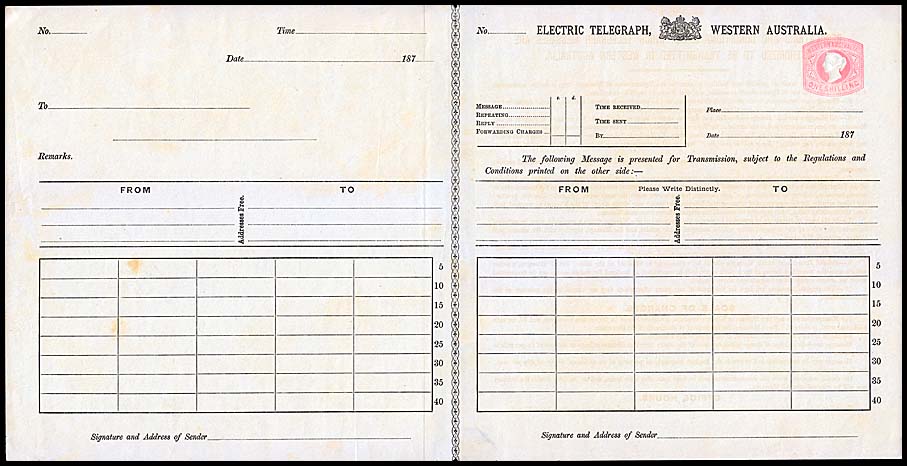 No. Time
Date 187
To
Remarks.
FROM TO
Addresses Free.
5
10
15
20
25
30
35
40
Signature and Address of Sender
No. ELECTRIC TELEGRAPH, WESTERN AUSTRALIA.
WESTERN AUSTRALIA
ONE SHILLING
s. d.
MESSAGE
REPEATING
REPLY
FORWARDING CHARGES
TIME RECEIVED
TIME SENT
BY
Place
Date 187
The following Message is presented for Transmission, subject to the Regulations and
Conditions printed on the other side:—
FROM Please Write Distinctly. TO
Addresses Free.
5
10
15
20
25
30
35
40
Signature and Address of Sender